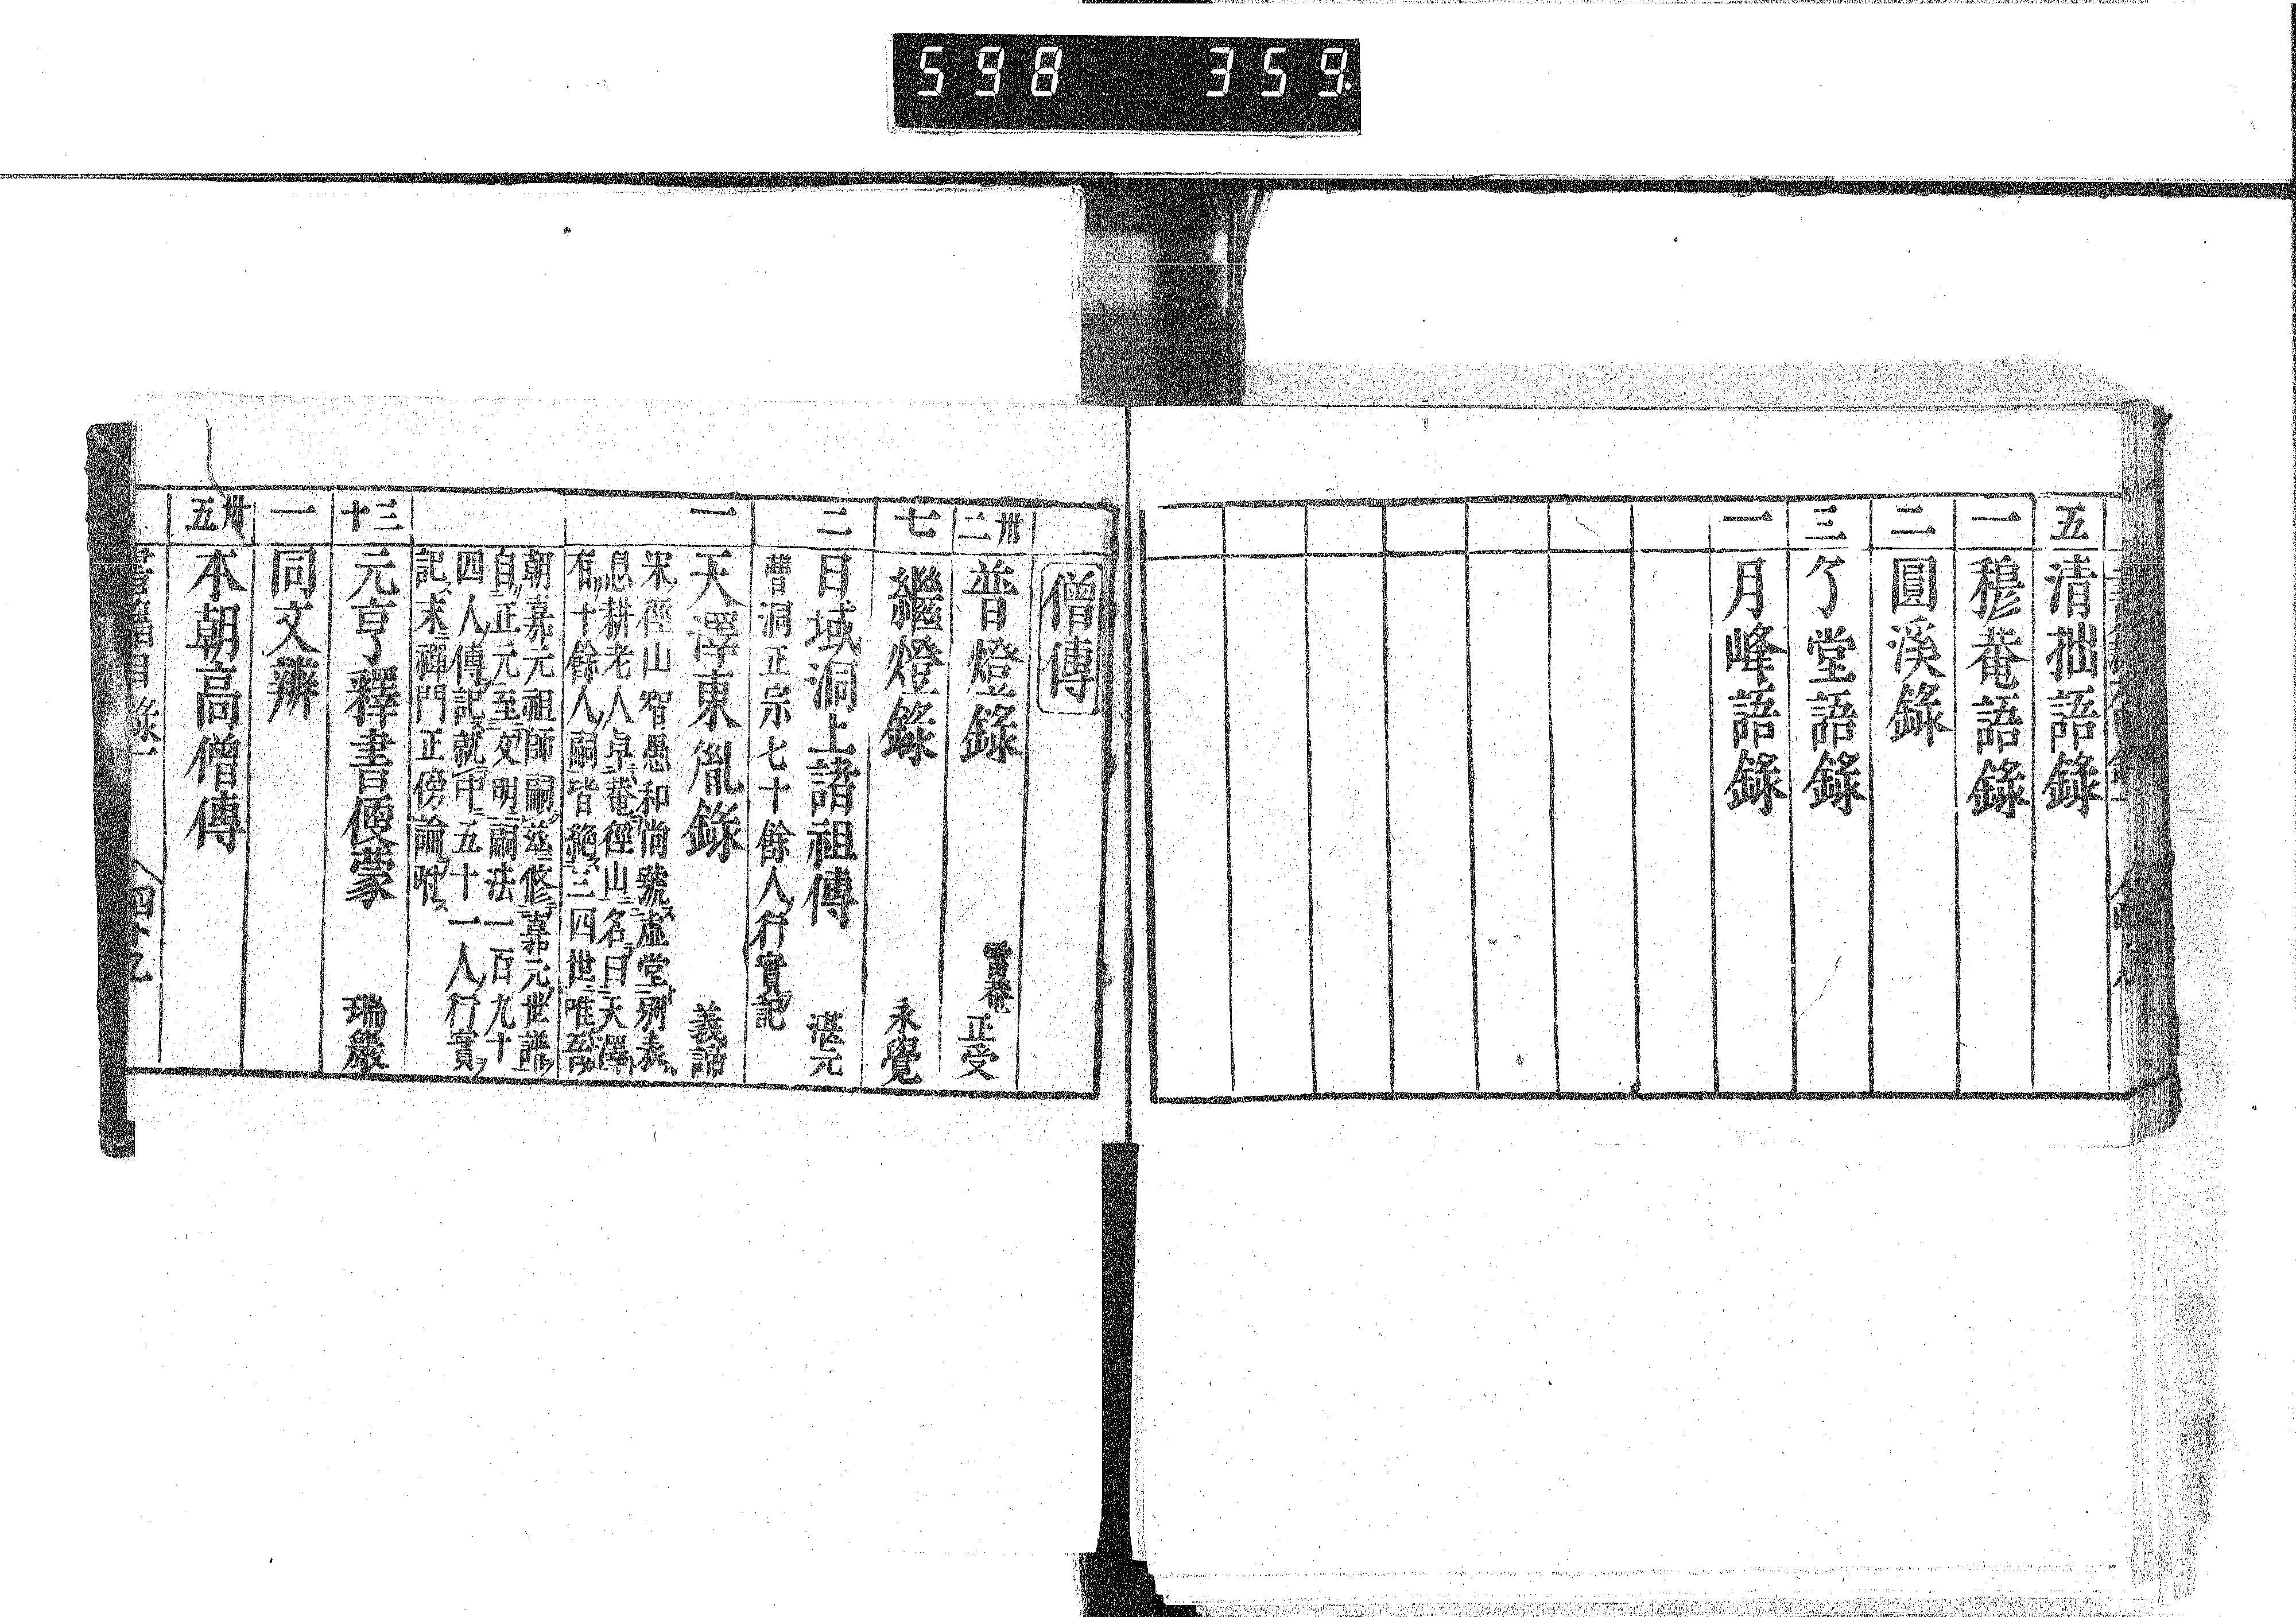 598 359.
五 清拙語錄
一 穆菴語錄
二 圓溪錄
三 了堂語錄
一 月峰語錄
僧傳
卅二 普燈錄 雷菴 正受
七 繼燈錄 永覺
二 日域洞上諸祖傳 湛元
曹洞正宗七十餘人行實記
一 天澤東胤錄 義諦
宋徑山智愚和尚號虛堂別表
息耕老人卓菴徑山名曰天澤
有十餘人嗣皆絕三四世唯吾
朝嘉元祖師嗣茲修嘉元世譜
自正元至文明嗣法一百九十
四人傳記就中五十一人行實
記末禪門正傍論附
三十 元亨釋書便蒙 瑞巖
一 同文辨
卅五 本朝高僧傳
書籍目錄一